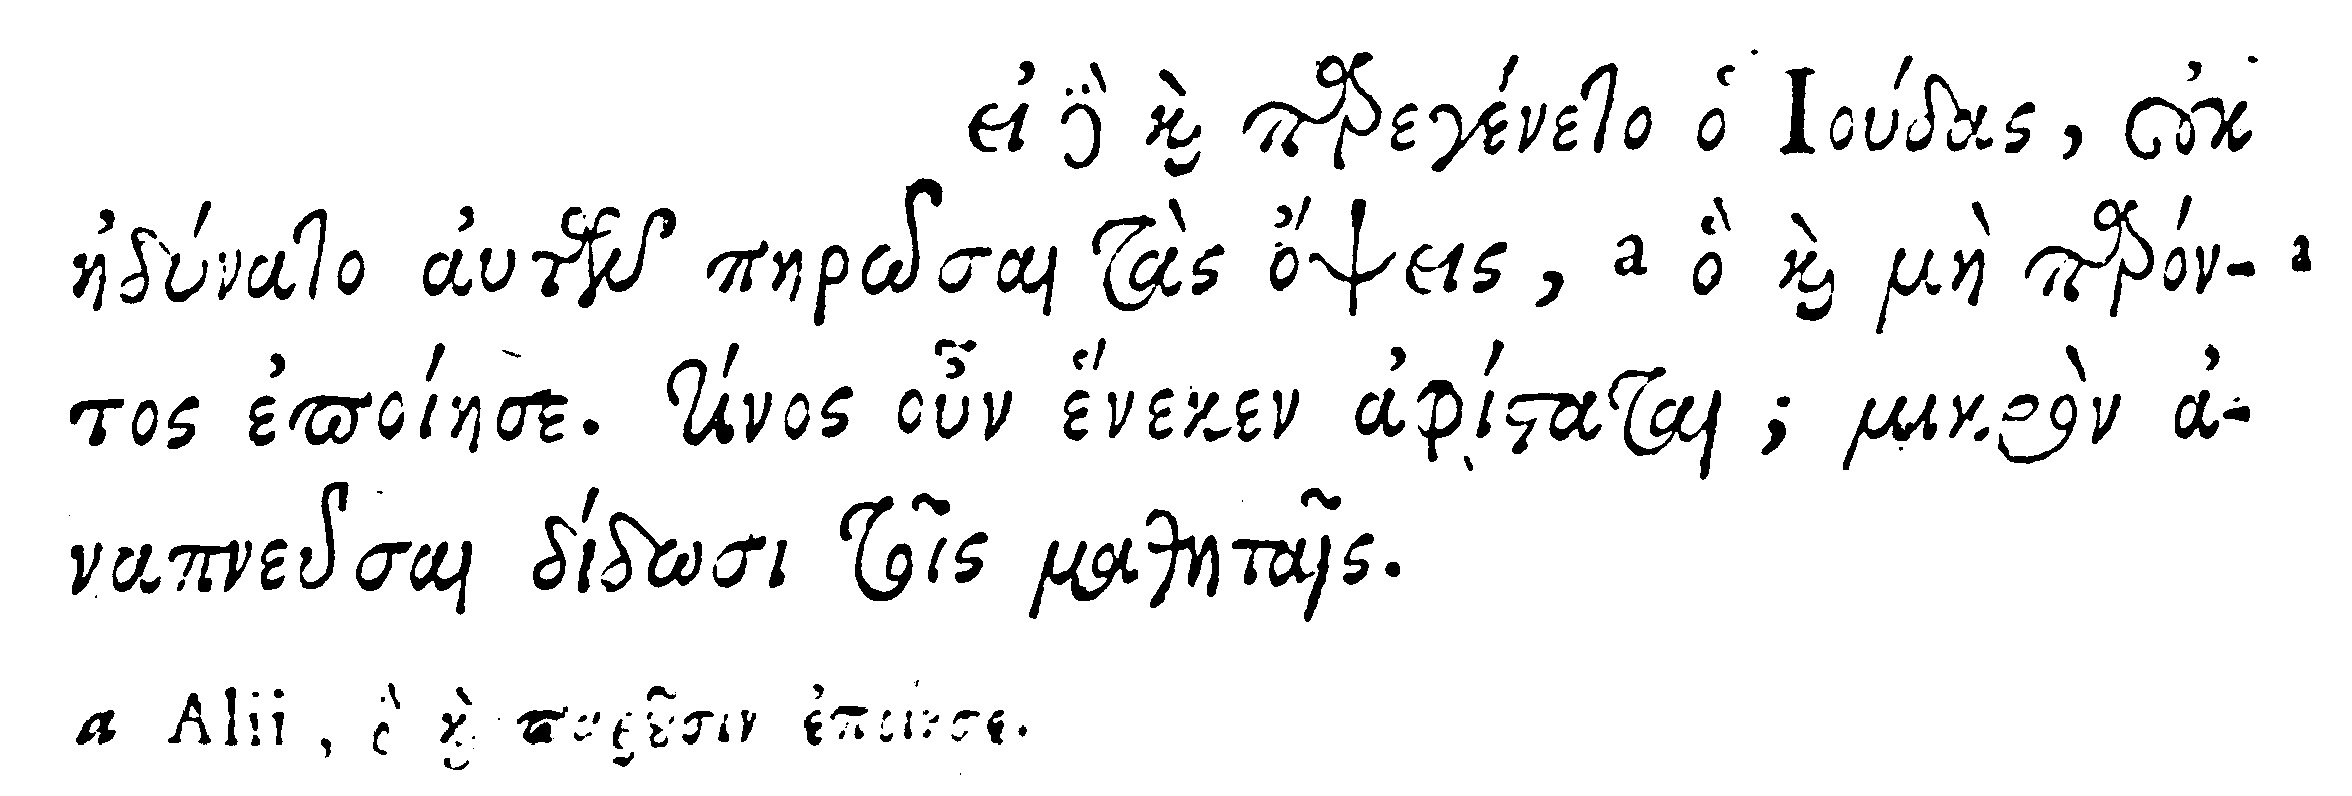 εἰ δὲ καὶ παρεγένετο ὁ Ιούδας, οὐκ
ἠδύνατο ἀυτῶν πηρῶσαι τὰς ὄψεις, a ὃ καὶ μὴ παρόν- a
τος ἐποίησε. τίνος οὖν ἕνεκεν ἀφίσταται; μικρὸν ἀ-
ναπνεῦσαι δίδωσι τοῖς μαθηταῖς.
a Alii, ὃ καὶ παροῦσιν ἐποίησε.